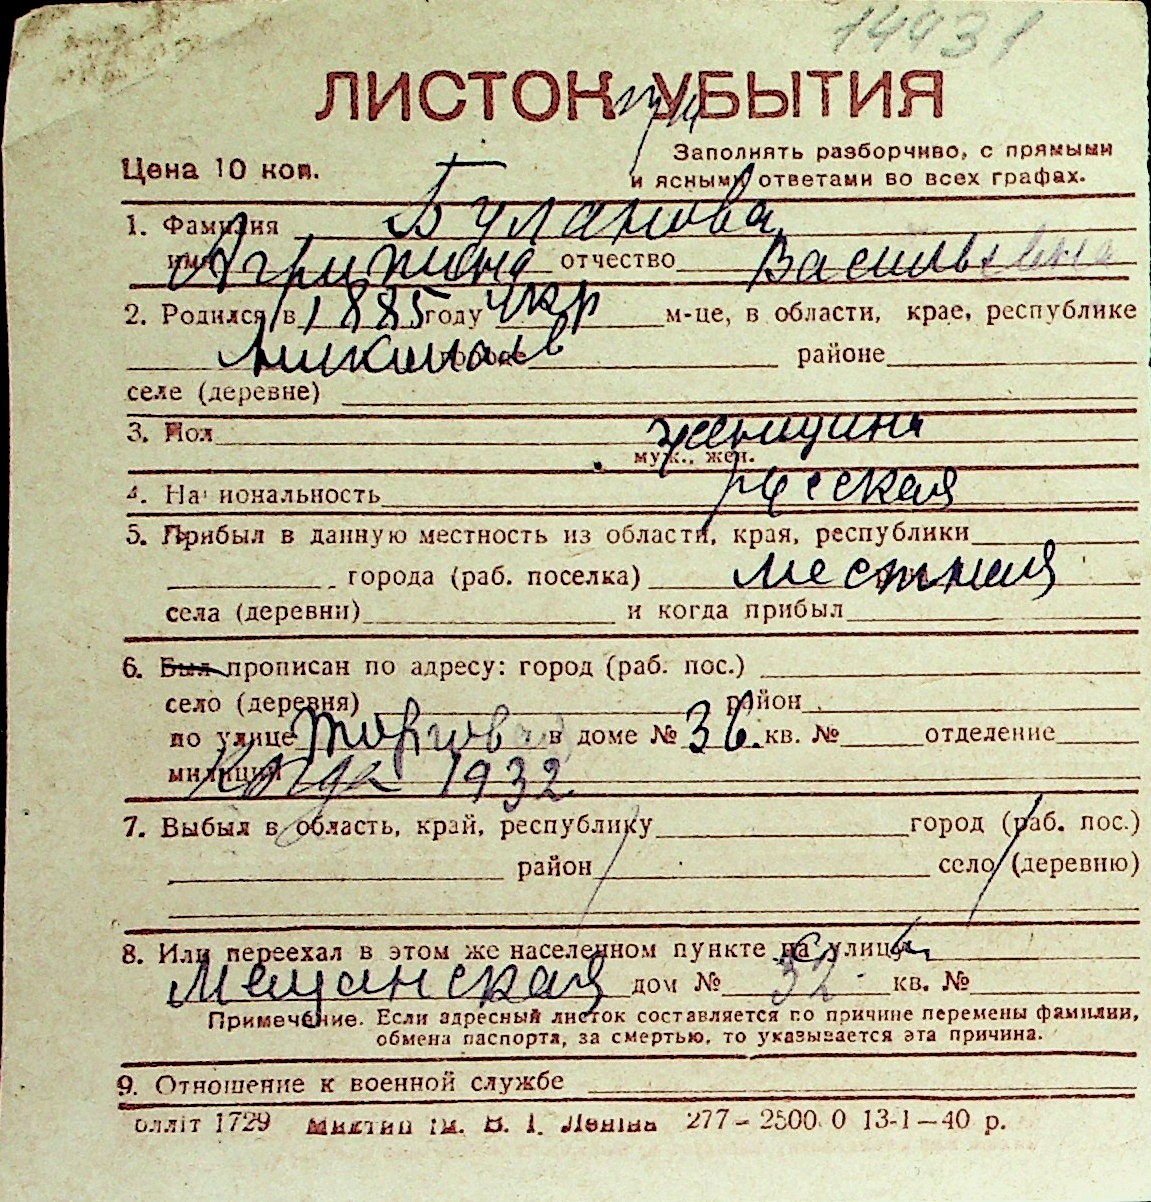 14931
ЛИСТОК УБЫТИЯ
Цена 10 коп.
Заполнять разборчиво, с прямыми
и ясными ответами во всех графах.
1. Фамилия Буланова
имя Агрипина отчество Васильевна
2. Родился в 1885 году укр м-це, в области, крае, республике
Николаев городе районе
селе (деревне)
3. Пол женщина
муж., жен.
4. Национальность русская
5. Прибыл в данную местность из области, края, республики
города (раб. поселка) местная
села (деревни) и когда прибыл
6. Был прописан по адресу: город (раб. пос.)
село (деревня) район
по улице Торговая в доме № 36. кв. № отделение
милиции Когда 1932
7. Выбыл в область, край, республику город (раб. пос.)
район село (деревню)
8. Или переехал в этом же населенном пункте на улицу
Мещанская дом № 32 кв. №
Примечение. Если адресный листок составляется по причине перемены фамилии,
обмена паспорта, за смертью, то указывается эта причина.
9. Отношение к военной службе
оллiт 1729 iм. В. I. Ленiна 277–2500.0 13-I–40 р.